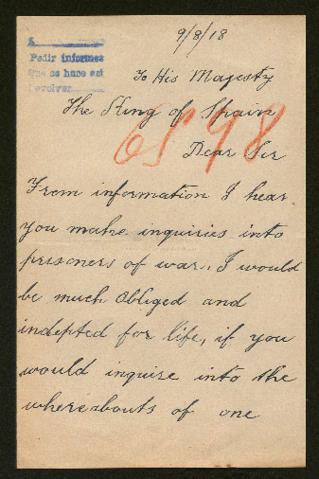 9/8/18
A
Pedir informes
que se hace así
devolver
To His Majesty
The King of Spain
6598
Dear Sir
From information I hear
you make inquiries into
prisoners of war. I would
be much obliged and
indepted for life, if you
would inquire into the
whereabouts of one